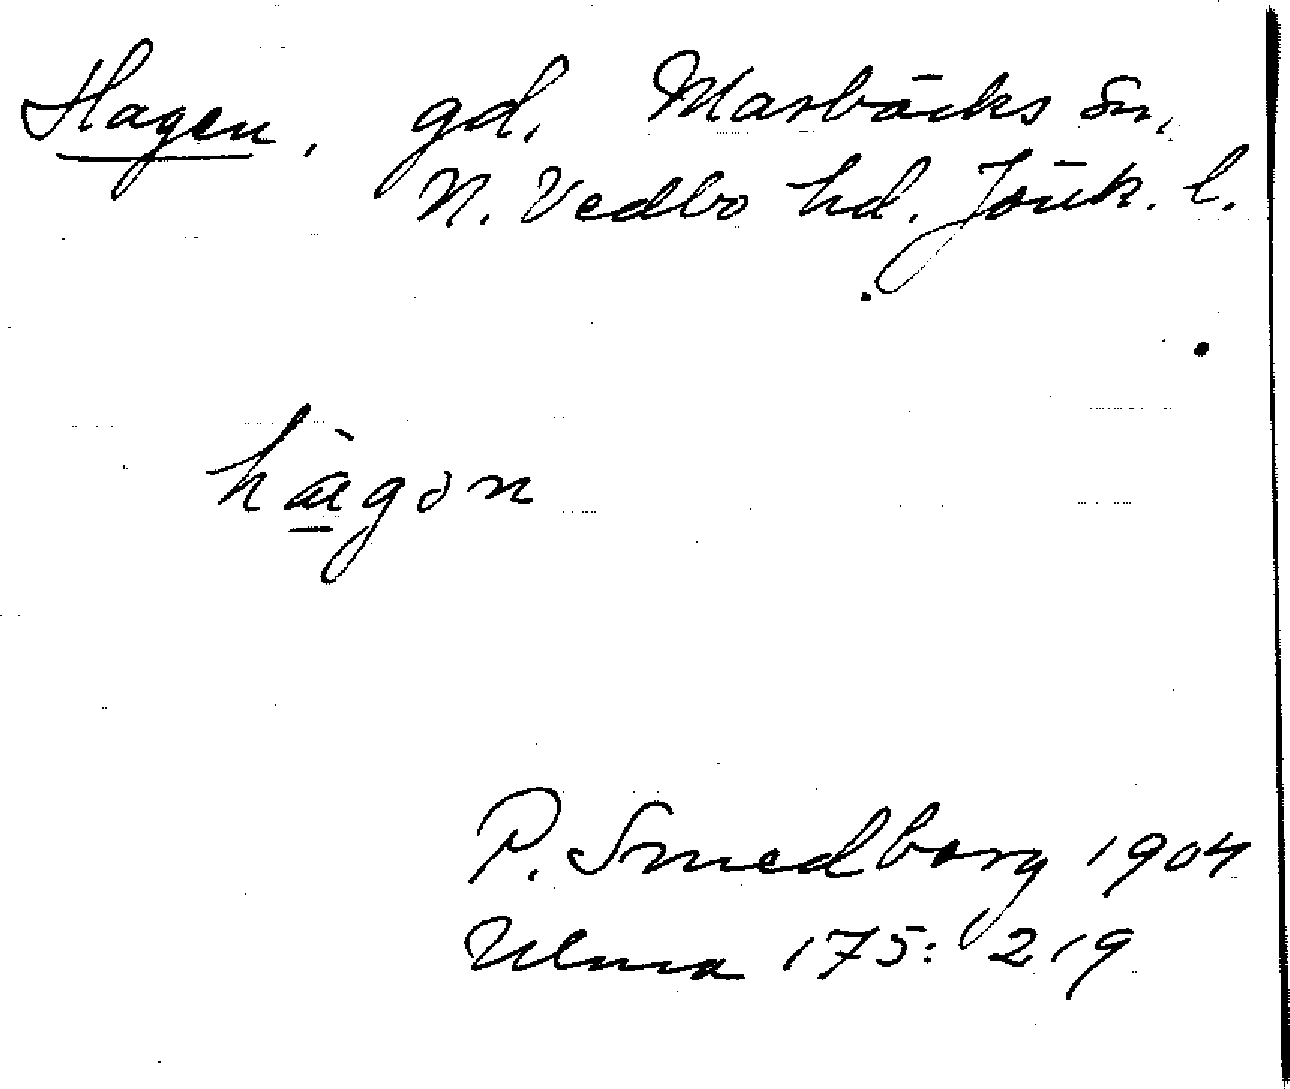 Hagen, gd. Marbäcks sn,
N. Vedbo hd. Jönk. l.
hàgon
P. Smedberg 1904
Ulma 175: 219